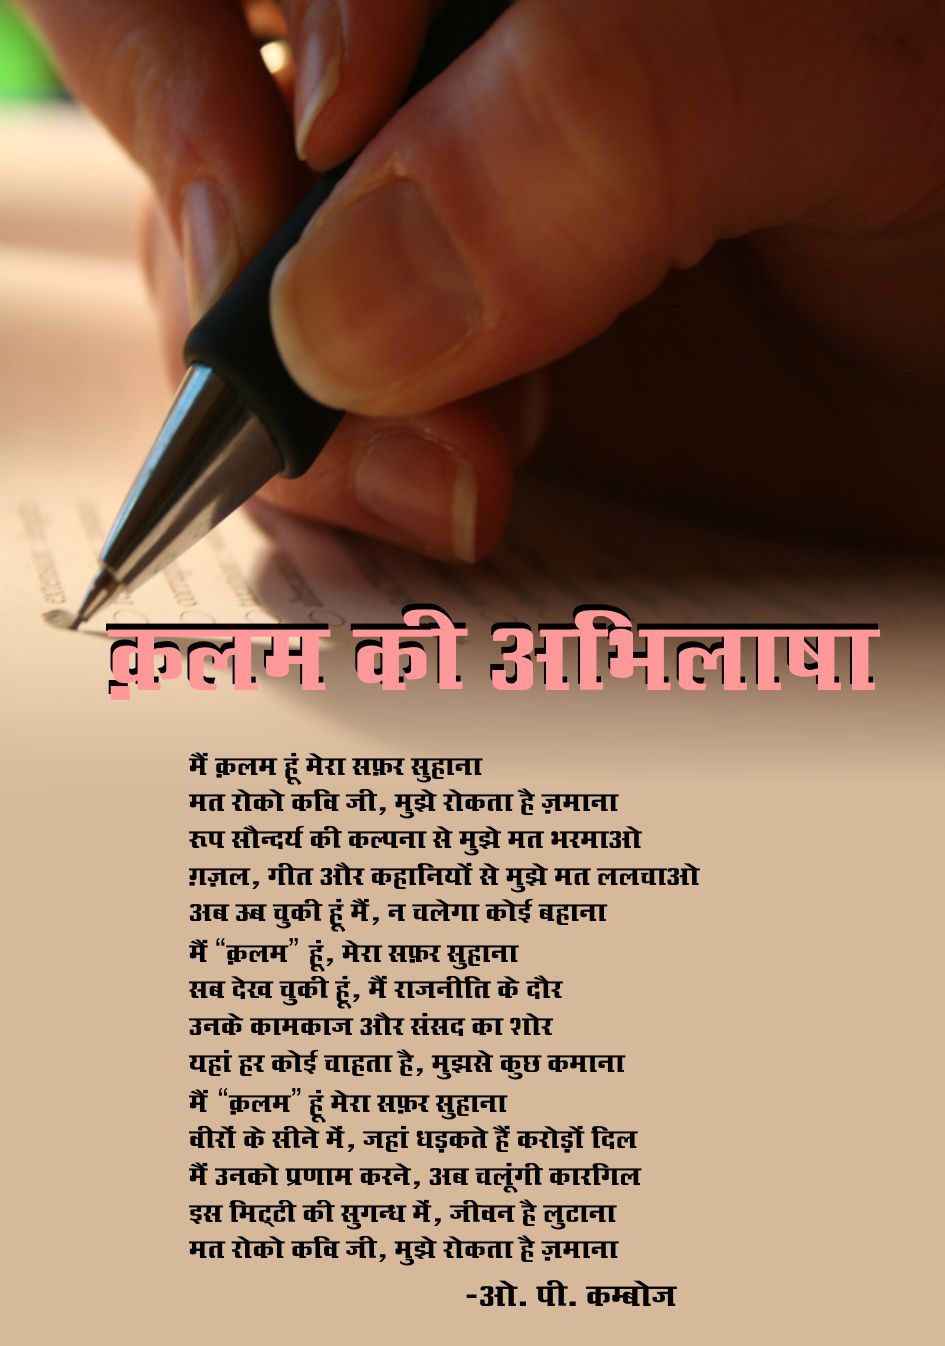 क़लम की अभिलाषा
मैं क़लम हूं मेरा सफ़र सुहाना
मत रोको कवि जी, मुझे रोकता है ज़माना
रूप सौन्दर्य की कल्पना से मुझे मत भरमाओ
ग़ज़ल, गीत और कहानियों से मुझे मत ललचाओ
अब ऊब चुकी हूं मैं, न चलेगा कोई बहाना
मैं “क़लम” हूं, मेरा सफ़र सुहाना
सब देख चुकी हूं, मैं राजनीति के दौर
उनके कामकाज और संसद का शोर
यहां हर कोई चाहता है, मुझसे कुछ कमाना
मैं “क़लम” हूं मेरा सफ़र सुहाना
वीरों के सीने में, जहां धड़कते हैं करोड़ों दिल
मैं उनको प्रणाम करने, अब चलूंगी कारगिल
इस मिट्टी की सुगन्ध में, जीवन है लुटाना
मत रोको कवि जी, मुझे रोकता है ज़माना
-ओ. पी. कम्बोज